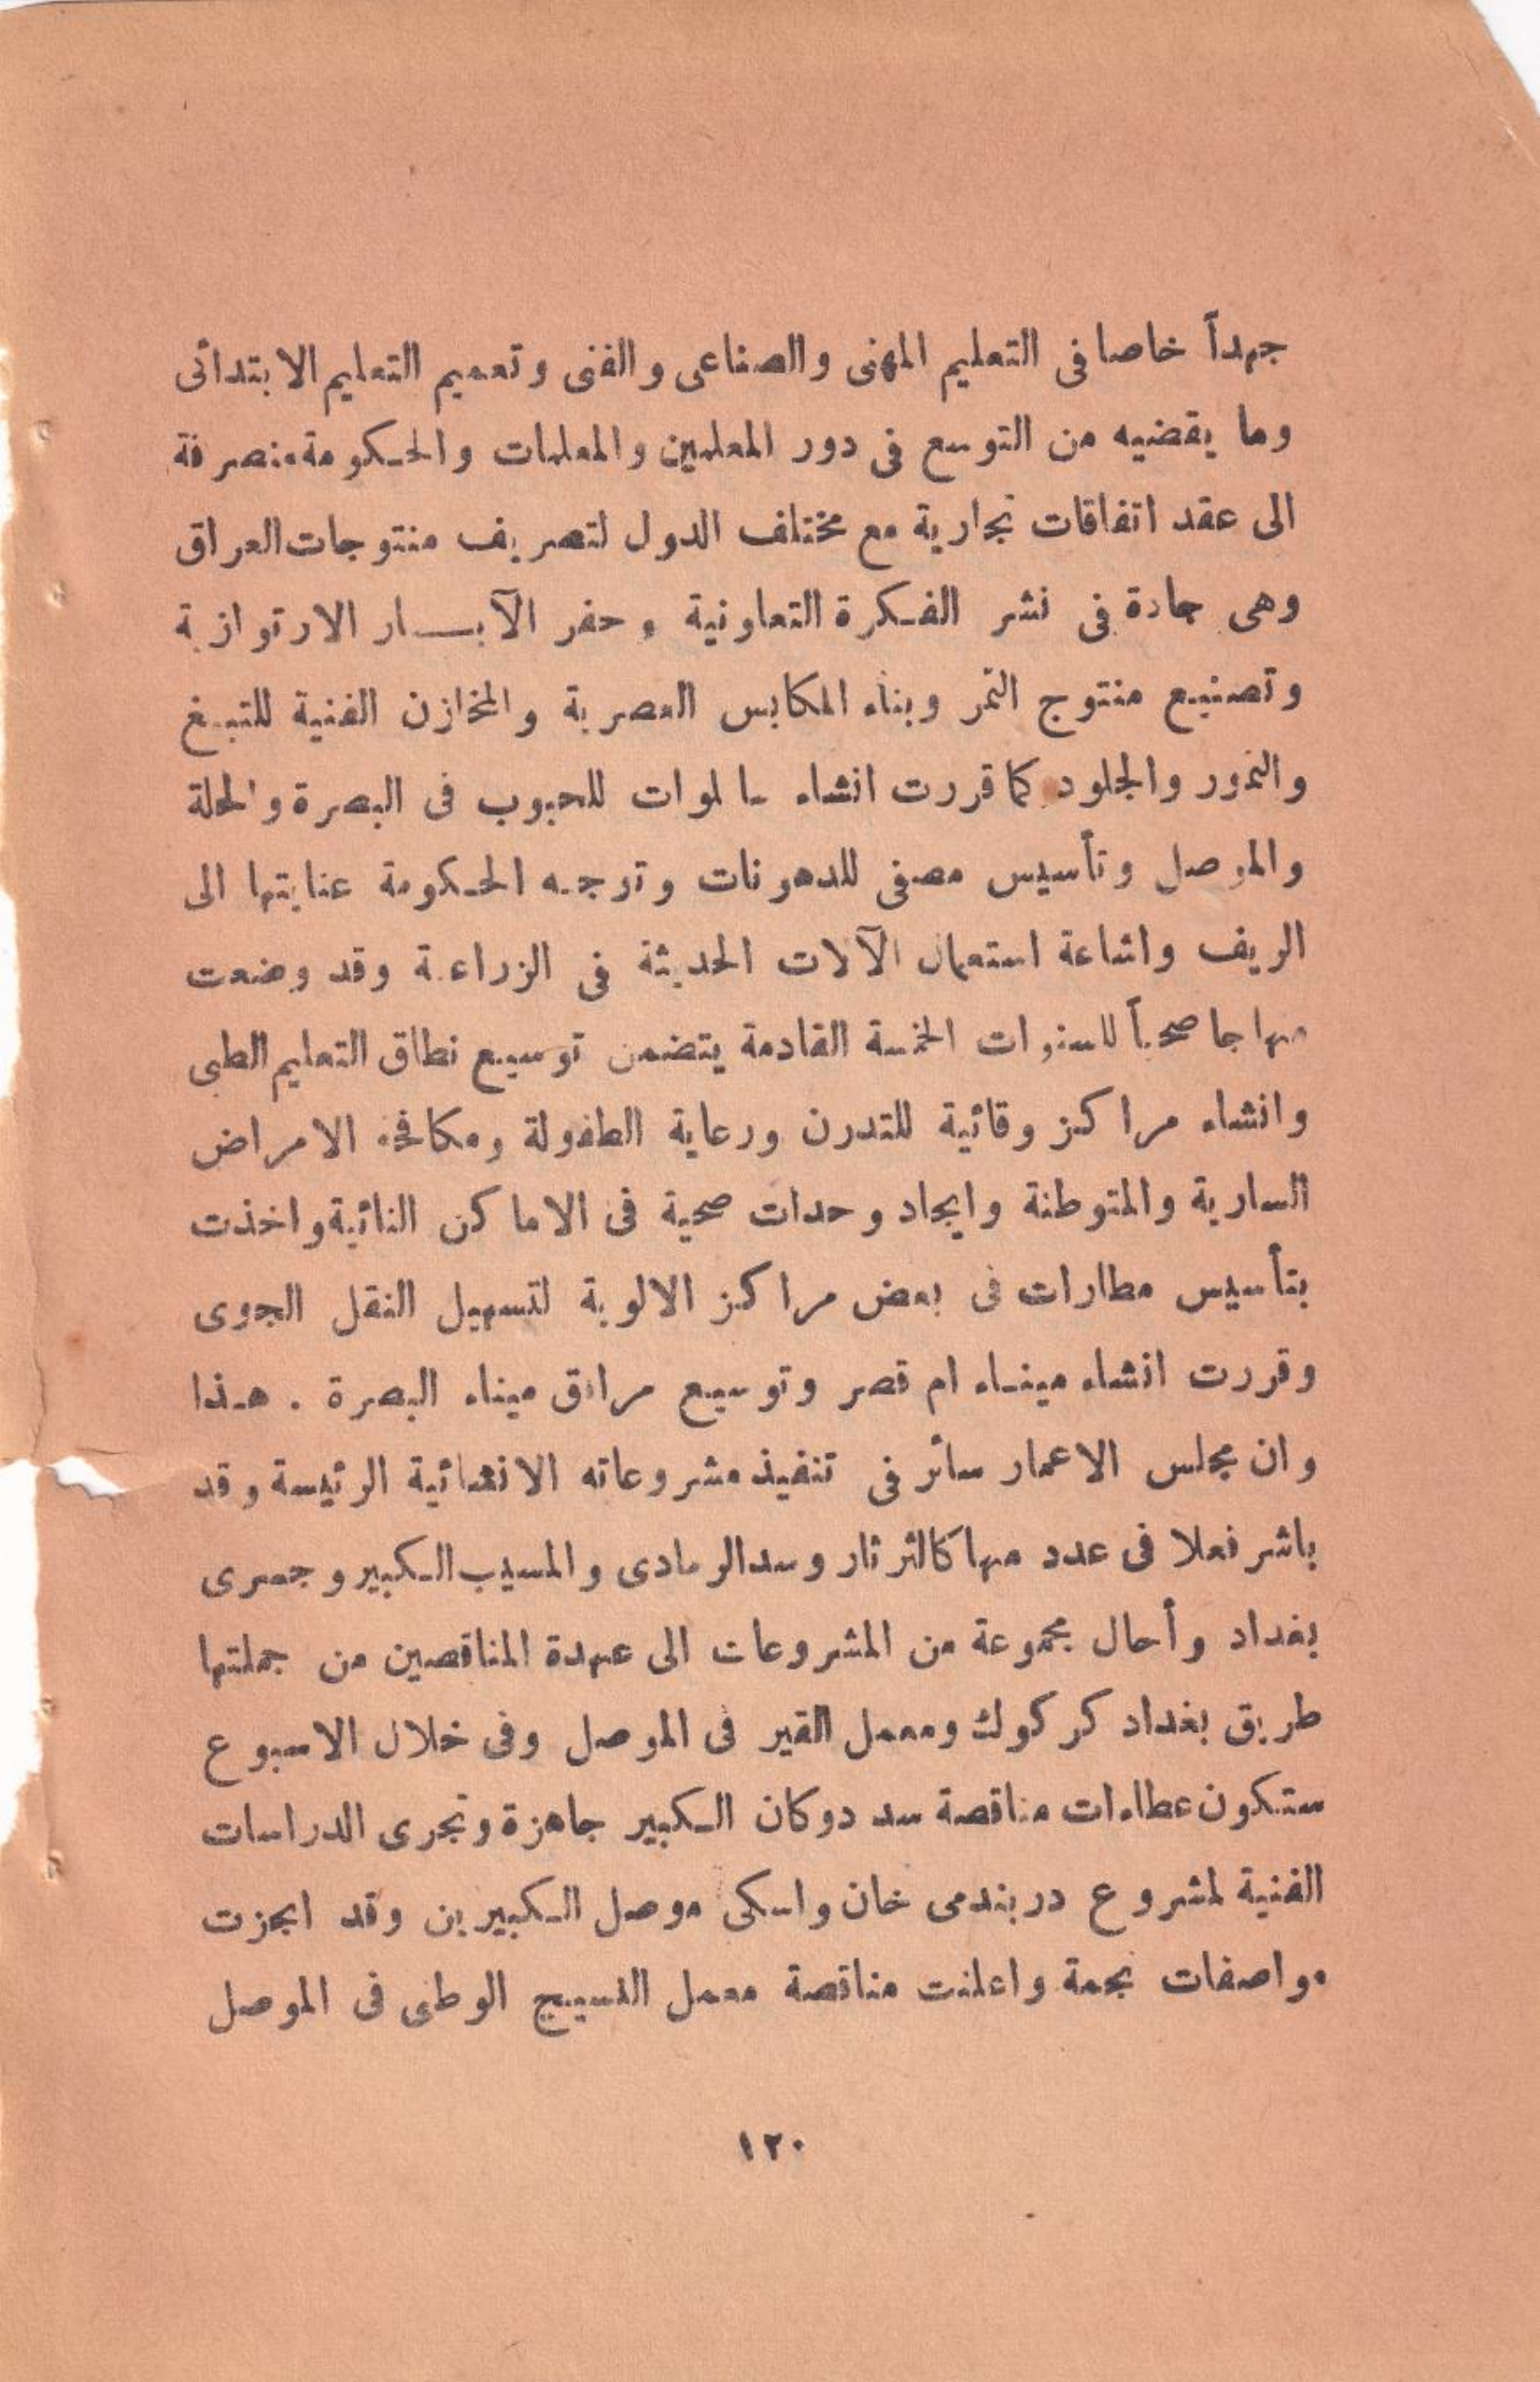 جهداً خاصا فى التعليم المهنى والصناعى والفنى وتعميم التعليم الابتدائى
وما يقضيه من التوسع فى دور المعلمين والمعلمات والحكومة منصرفة
الى عقد اتفاقات تجارية مع مختلف الدول لتصريف منتوجات العراق
وهى جادة فى نشر الفكرة التعاونية وحفر الآبــار الارتوازية
وتصنيع منتوج التمر وبناء المكابس العصرية والمخازن الفنية للتبغ
والتمور والجلود كما قررت انشاء سالوات للحبوب فى البصرة والحلة
والموصل وتأسيس مصفى للدهونات وتوجه الحكومة عنايتها الى
الريف واشاعة استعمال الآلات الحديثة فى الزراعة وقد وضعت
منهاجا صحياً للسنوات الخمسة القادمة يتضمن توسيع نطاق التعليم الطبى
وانشاء مراكز وقائية للتدرن ورعاية الطفولة ومكافحة الامراض
السارية والمتوطنة وايجاد وحدات صحية فى الاماكن النائية واخذت
بتأسيس مطارات فى بعض مراكز الالوية لتسهيل النقل الجوى
وقررت انشاء مينـاء ام قصر وتوسيع مرافق ميناء البصرة . هـذا
وان مجلس الاعمار سائر فى تنفيذ مشروعاته الانشائية الرئيسة وقد
باشر فعلا فى عدد منها كالثرثار وسد الرمادى والمسيب الكبير وجسرى
بغداد وأحال مجموعة من المشروعات الى عهدة المناقصين من جملتها
طريق بغداد كركوك ومعمل القير فى الموصل وفى خلال الاسبوع
ستكون عطاءات مناقصة سد دوكان الكبير جاهزة وتجرى الدراسات
الفنية لمشروع دربندى خان واسكى موصل الكبيرين وقد انجزت
مواصفات نجمة واعلنت مناقصة معمل النسيج الوطنى فى الموصل
١٢٠